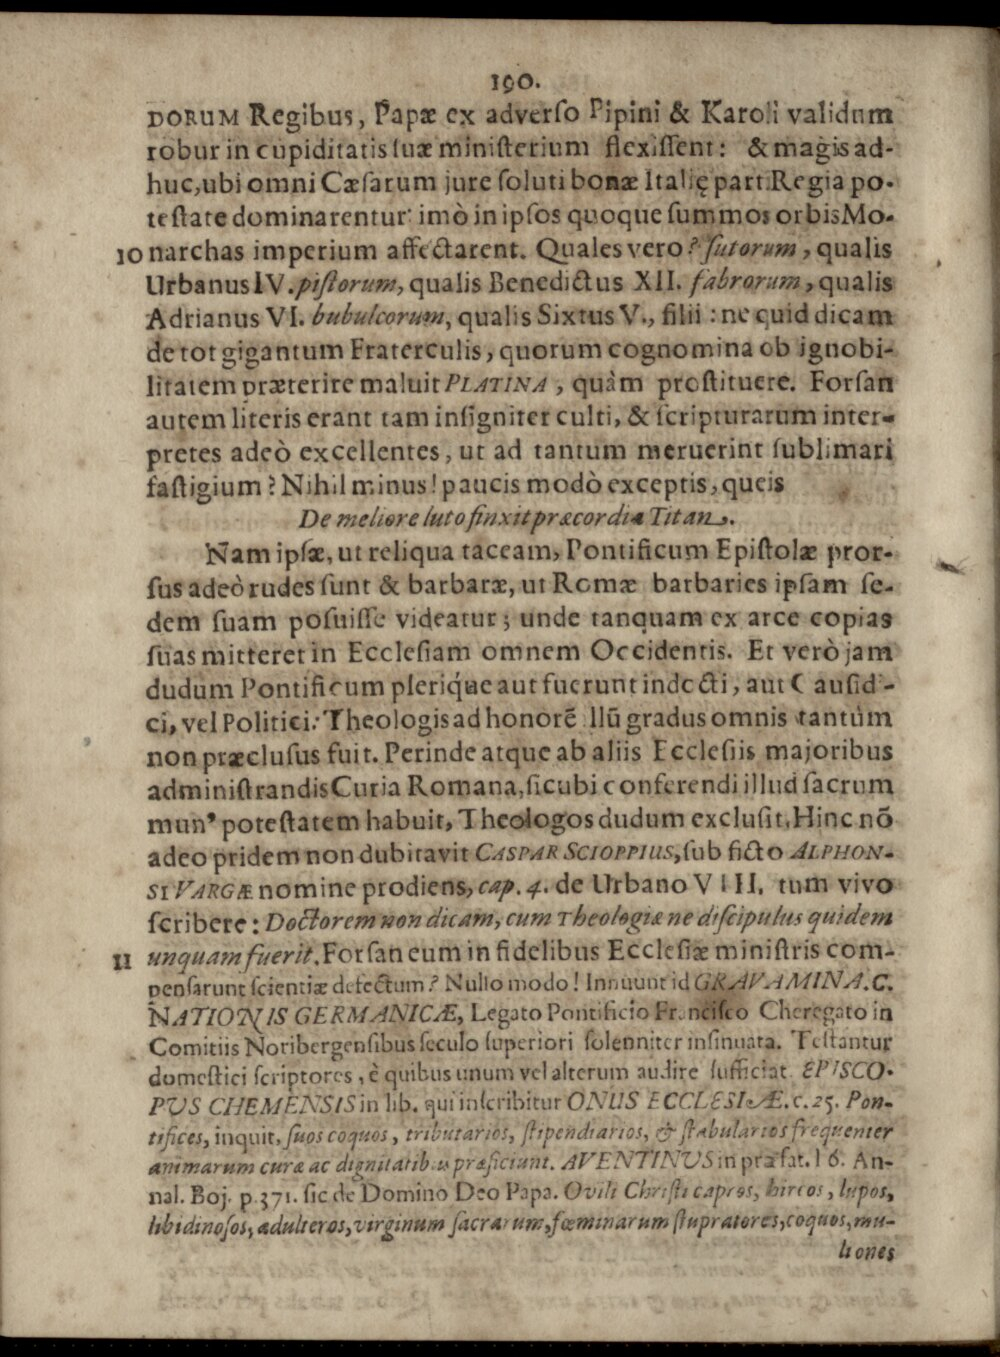 190.
DORUM Regibus, Papæ ex adverſo Pipini & Karoli validum
robur in cupiditatis ſuæ miniſterium flexiſſent: & magis ad-
huc, ubi omni Cæſarum jure ſoluti bonæ Italię part. Regia po-
teſtate dominarentur: imò in ipſos quoque ſummos orbis Mo-
10 narchas imperium affectarent. Quales vero? ſutorum, qualis
Urbanus IV. piſtorum, qualis Benedictus XII. fabrorum, qualis
Adrianus VI. bubulcorum, qualis Sixtus V., filii: ne quid dicam
de tot gigantum Fraterculis, quorum cognomina ob ignobi-
litatem præterire maluit PLATINA, quàm proſtituere. Forſan
autem literis erant tam inſigniter culti, & ſcripturarum inter-
pretes adeò excellentes, ut ad tantum meruerint ſublimari
faſtigium? Nihil minus! paucis modò exceptis, queis
De meliore luto finxit præcordia Titan.
Nam ipſæ, ut reliqua taceam, Pontificum Epiſtolæ pror-
ſus adeò rudes ſunt & barbaræ, ut Romæ barbaries ipſam ſe-
dem ſuam poſuiſſe videatur; unde tanquam ex arce copias
ſuas mitteret in Eccleſiam omnem Occidentis. Et verò jam
dudum Pontificum plerique aut fuerunt indocti, aut Cauſidi-
ci, vel Politici: Theologis ad honorē illū gradus omnis tantùm
non præcluſus fuit. Perinde atque ab aliis Eccleſiis majoribus
adminiſtrandis Curia Romana, ſicubi conferendi illud ſacrum
munꝰ poteſtatem habuit, Theologos dudum excluſit. Hinc nō
adeo pridem non dubitavit CASPAR SCIOPPIUS, ſub ficto ALPHON-
SI VARGÆ nomine prodiens, cap. 4. de Urbano VIII. tum vivo
ſcribere: Doctorem non dicam, cum Theologiæ ne diſcipulus quidem
11 unquam fuerit. Forſan eum in fidelibus Eccleſiæ miniſtris com-
penſarunt ſcientiæ defectum? Nullo modo! Innuunt id GRAVAMINA. C.
NATIONIS GERMANICÆ, Legato Pontificio Franciſco Cheregato in
Comitiis Noribergenſibus ſeculo ſuperiori ſolenniter inſinuata. Teſtantur
domeſtici ſcriptores, è quibus unum vel alterum audire ſufficiat. EPISCO-
PUS CHEMENSIS in lib. qui inſcribitur ONUS ECCLESIÆ. c. 25. Pon-
tifices, inquit, ſuos coquos, tributarios, ſtipendiarios, & ſtabularios frequenter
animarum curæ ac dignitatibus præficiunt. AVENTINUS in præfat. l 6. An-
nal. Boj. p. 371. ſic de Domino Deo Papa. Ovili Chriſti capros, hircos, lupos,
libidinoſos, adulteros, virginum ſacrarum, fœminarum ſtupratores, coquos, mu-
liones